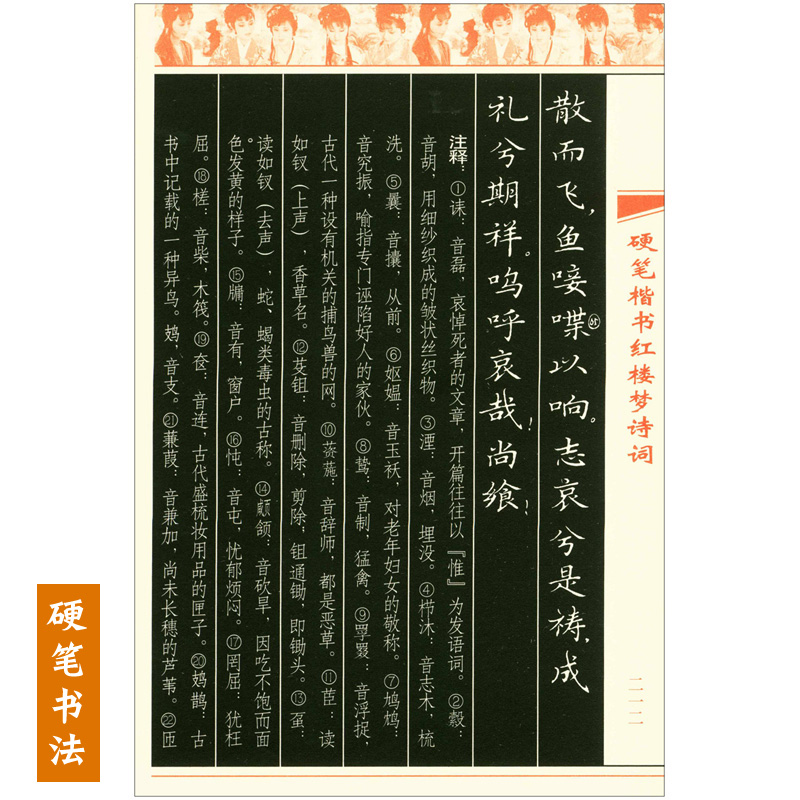 散而飞，鱼唼喋以响。志哀兮是祷，成
礼兮期祥。呜呼哀哉！尚飨！
注释：①诔：音磊，哀悼死者的文章，开篇往往以『惟』为发语词。②縠：
音胡，用细纱织成的皱状丝织物。③湮：音烟，埋没。④栉沐：音志木，梳
洗。⑤曩：音攮，从前。⑥妪媪：音玉袄，对老年妇女的敬称。⑦鸠鸩：
音究振，喻指专门诬陷好人的家伙。⑧鸷：音制，猛禽。⑨罦罬：音浮捉，
古代一种设有机关的捕鸟兽的网。⑩薋葹：音辞师，都是恶草。⑪茝：读
如钗（上声），香草名。⑫芟鉏：音删除，剪除；鉏通锄，即锄头。⑬虿：
读如钗（去声），蛇、蝎类毒虫的古称。⑭顑颔：音砍旱，因吃不饱而面
色发黄的样子。⑮牖：音有，窗户。⑯忳：音屯，忧郁烦闷。⑰罔屈：犹枉
屈。⑱槎：音柴，木筏。⑲奁：音连，古代盛梳妆用品的匣子。⑳鳷鹊：古
书中记载的一种异鸟。鳷，音支。㉑蒹葭：音兼加，尚未长穗的芦苇。㉒匝
硬笔楷书红楼梦诗词
二一二
硬笔书法